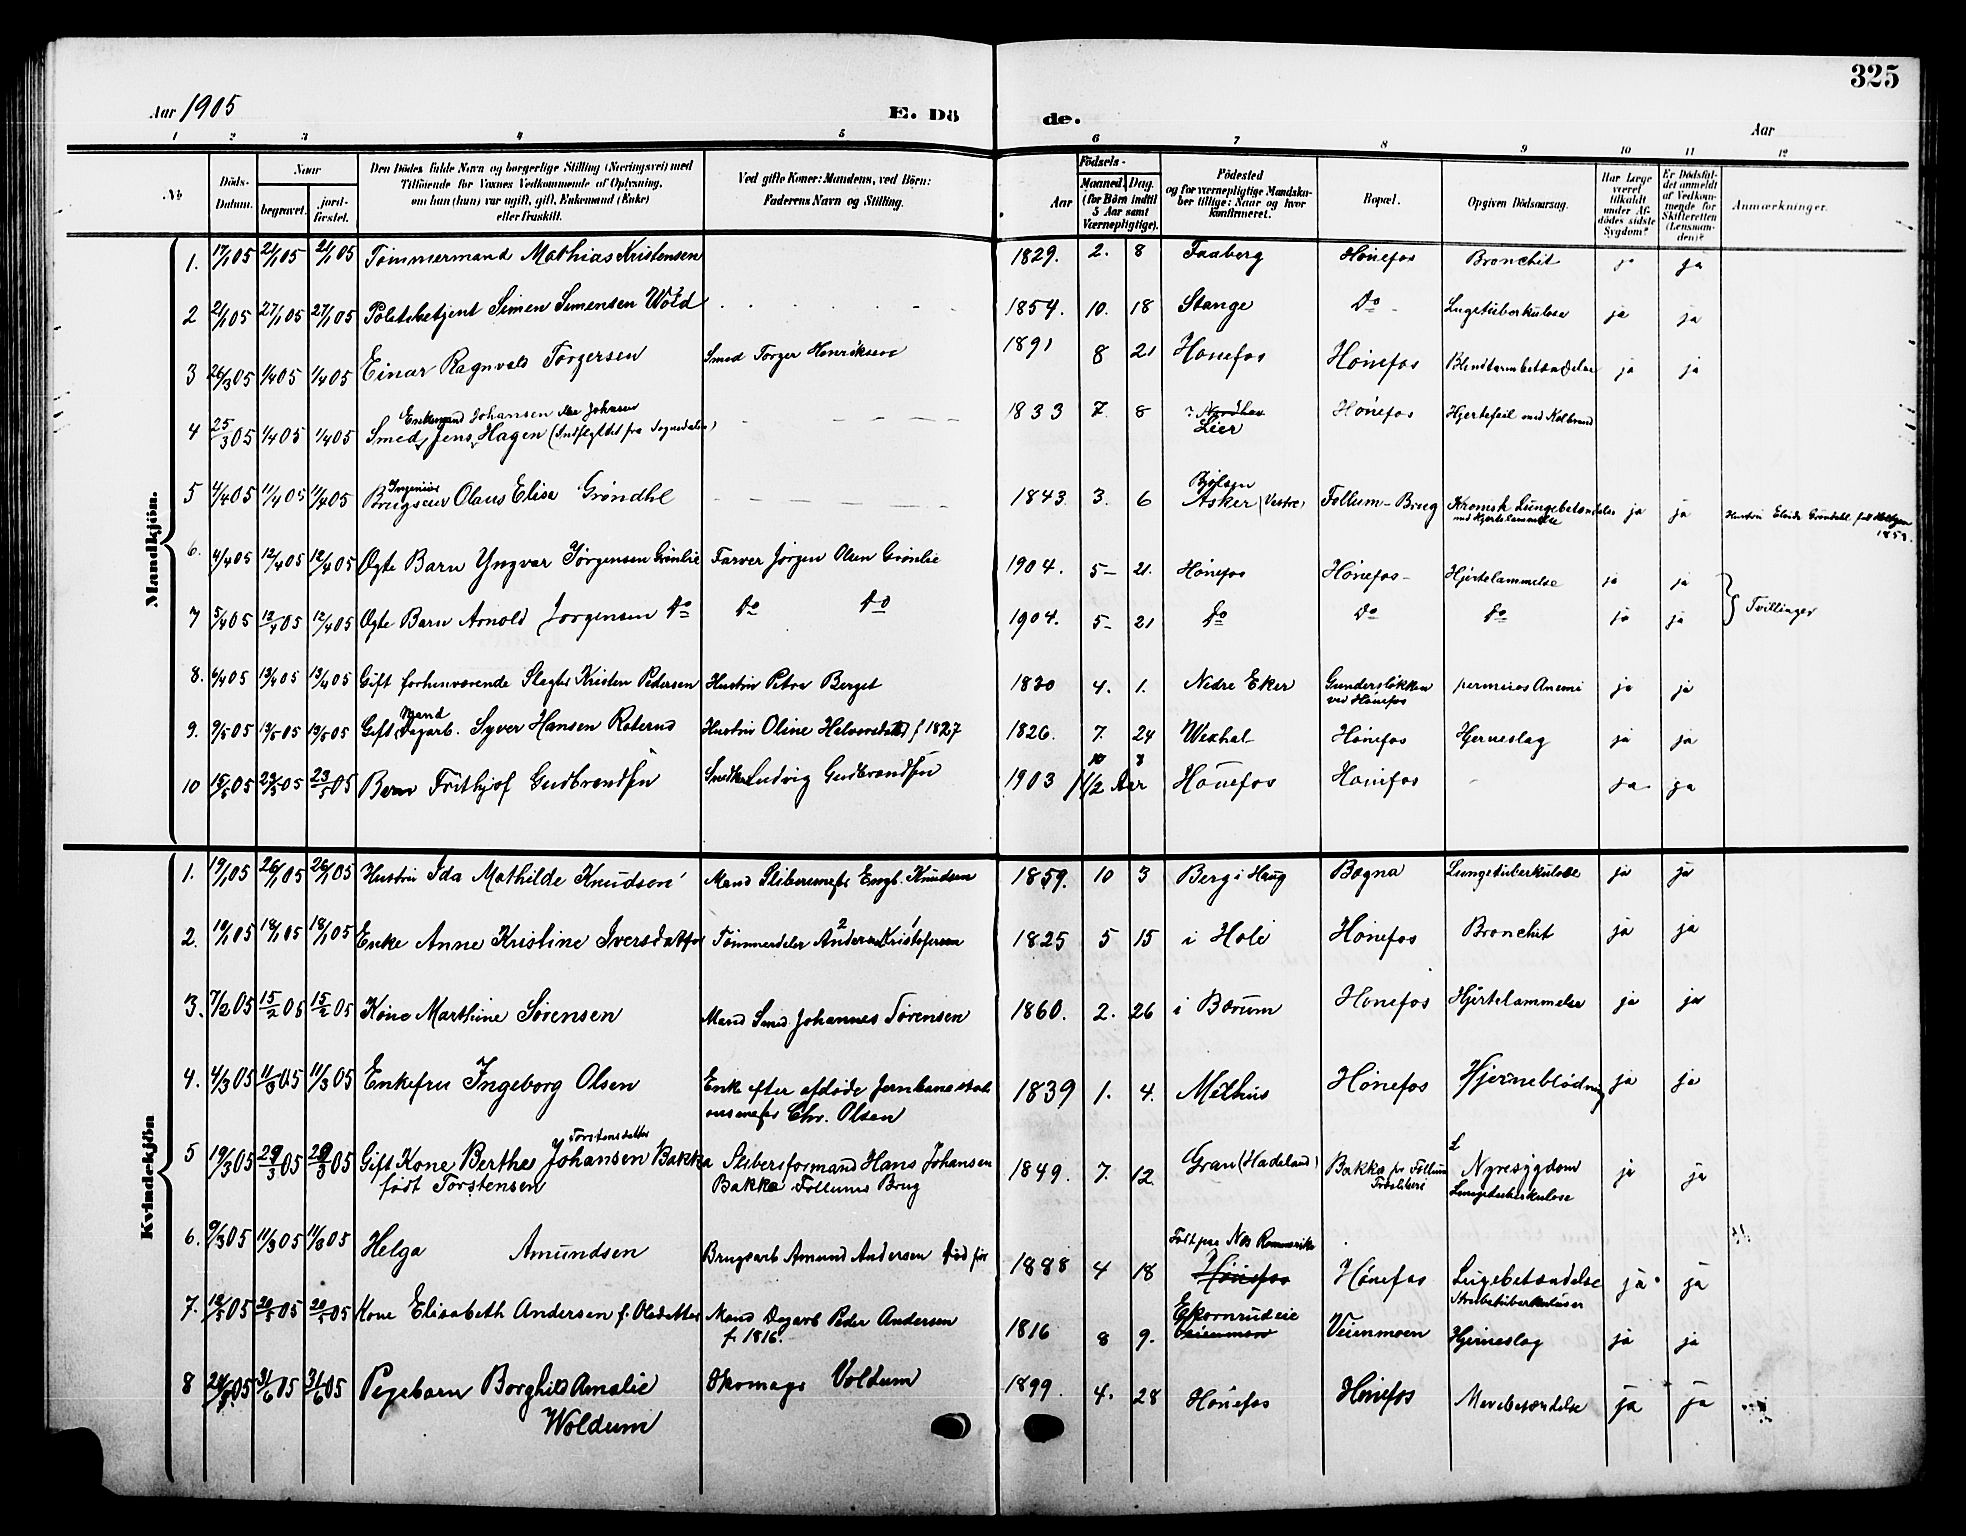 325
Aar 1905
E. Dö de.
Aar
1 2 3 4 5 6 7 8 9 10 11 12
No
Döds-Datum.
Naar
begravet.
jord-festet.
Den Dödes fulde Navn og borgerlige Stilling (Næringsvei) med
Tilföiende for Voxnes Vedkommende af Oplysning,
om han (hun) var ugift, gift, Enkemand (Enke)
eller fraskilt.
Ved gifte Koner: Mandens, ved Börn:
Faderens Navn og Stilling.
Födsels-
Aar
Maaned. Dag.
(for Börn indtil 5 Aar samt Værnepligtige).
Födested
og for værnepligtige Mandska-
ber tillige: Naar og hvor
konfirmeret.
Bopæl.
Opgiven Dödsaarsag.
Har Læge været tilkaldt under Af-dödes sidste Sygdom?
Er Dödsfal-det anmeldt af Vedkom-mende for Skifteretten (Lensman-den)?
Anmærkninger.
Mandkjön.
1. 17/1 05 24/1 05 24/1 05 Tømmermand Mathias Kristensen 1829. 2. 8 Faaberg Hønefos Bronchit ja ja
2 21/1 05 27/1 05 27/1 05 Politibetjent Simen Simensen Wold 1854. 10. 18 Stange Do Lugetuberkulose ja ja
3 26/3 05 1/4 05 1/4 05 Einar Ragnvald Torgersen Smed Torger Henriksen 1891 8 21 Hønefos Hønefos Blindtarmbetændelse ja ja
Enkemand Johansen
4 25/3 05 1/4 05 1/4 05 Smed Jens Hagen (Indflyttet fra Sognedalen) 1833 7. 8 Lier Hønefos Hjertefeil med Kolbrand
Ingeniør
5 4/4 05 11/4 05 11/4 05 Brugseier Olaus Elisa Grøndhl 1843. 3. 6 Asker (Vestre) Follum-Brug Kronisk Lungebetændelse
med Hjertelammelse ja ja Hustru
6. 4/4 05 12/4 05 12/4 05 Ægte Barn Yngvar Jørgensen Grønlie Farver Jørgen Olsen Grønlie 1904. 5- 21. Hønefos Hønefos- Hjertelammelse ja ja
7 5/4 05 12/4 05 12/4 05 Ægte Barn Arnold Jørgensen Do Do Do 1904. 5- 21 Do Do Do ja ja } Tvillinger
8. 6/4 05 13/4 05 13/4 05 Gift forhenværende Slagter Kristen Pedersen Hustru Petra Berget 1830 4. 1. Nedre Eker Gundersløkken
ved Hønefos perniciøs Anemi ja ja
Mand
9. 9/5 05 13/5 05 13/5 05 Gift Dagarb. Syver Hansen Roterud Hustru Oline Halvorsdatt f 1827 1826. 7. 24 Wexhal Hønefos Hjerneslag ja ja
10 8
10 15/5 05 23/5 05 23/5 05 Barn Frithjof Gudbrandsen Snedker Ludvig Gudbrandsen 1903 1 1/2 Aar Hønefos Hønefos ja ja
Kvindekjön
1. 19/1 05 26/1 05 26/1 05 Hustru Ida Mathilde Knudsen Mand Sliberimest Engb. Knudsen 1859. 10 3 Berg i Haug Bogna Lungetuberkulose ja ja
2. 10/1 05 18/1 05 18/1 05 Enke Anne Kristine Iversdatter Tømmerdeler Anders Kristofersen 1825 5 15 i Hole Hønefos Bronchit ja ja
3. 7/2 05 15/2 05 15/2 05 Kone Marthine Sørensen Mand Smed Johannes Sørensen 1860. 2. 26 i Bærum Hønefos Hjertelammelse ja ja
4. 4/3 05 11/3 05 11/3 05 Enkefru Ingeborg Olsen Enke efter afdøde Jernbanestati
onsmester Chr. Olsen 1839 1. 4. Melhus Hønefos Hjerneblødning ja ja
Torstensdatter
5 19/3 05 29/3 05 29/3 05 Gift Kone Berthe Johansen Bakka
født Torstensen Slibersformand Hans Johansen
Bakka Follums Brug 1849. 7. 12 Gran (Hadeland) Bakka pr Follum
Træsliberi Nyresygdom
Lungetuberkulose ja ja
6. 9/3 05 11/3 05 11/3 05 Helga Amundsen Brugsarb Amund Andersen Død før 1888 4 18 Født paa Nes Romerike
Hønefos Hønefos Lugebetændelse
Strubetuberkuløser ja ja
7. 05 20/5 05 20/5 05 Kone Elisabeth Andersen f. Olsdatter Mand Dagarb Peder Andersen
f. 1816. 1816 8 9. Ekornrudeie
Veienmoen Veienmoen Hjerneslag ja ja
8 05 3/6 05 3/6 05 Pigebarn Borghild Amalie
Woldum Skomager Voldum 1899. 4. 28 Hønefos Hønefos Mavebetændelse ja ja